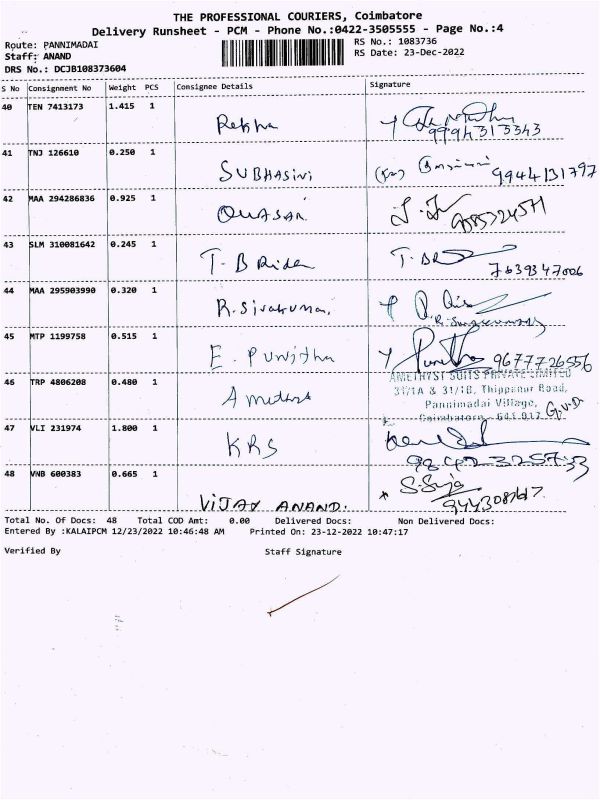 THE PROFESSIONAL COURIERS, Coimbatore
Delivery Runsheet - PCM - Phone No.:0422-3505555 - Page No.:4
Route: PANNIMADAI
RS No.: 1083736
Staff: ANAND
RS Date: 23-Dec-2022
DRS No.: DCJB108373604
S No Consignment No Weight PCS Consignee Details Signature
40 TEN 7413173 1.415 1 Rekha
9994313343
41 TNJ 126610 0.250 1 SUBHASINI 9944131797
42 MAA 294286836 0.925 1 QUASAR
43 SLM 310081642 0.245 1 T. B T. B
7639347006
44 MAA 295903990 0.320 1 R. Sivakumar
45 MTP 1199758 0.515 1 E. Punitha Punitha 9677726556
AMETHYST SUITS PRIVATE LIMITED
46 TRP 4806208 0.480 1 Amethyst 31/1A & 31/1B, Thippanur Road,
Pannimadai Village,
Coimbatore - 641 017
47 VLI 231974 1.800 1 KRS
9842325733
48 VNB 600383 0.665 1 VIJAY ANAND.
Total No. Of Docs: 48 Total COD Amt: 0.00 Delivered Docs: Non Delivered Docs:
Entered By :KALAIPCM 12/23/2022 10:46:48 AM Printed On: 23-12-2022 10:47:17
Verified By Staff Signature